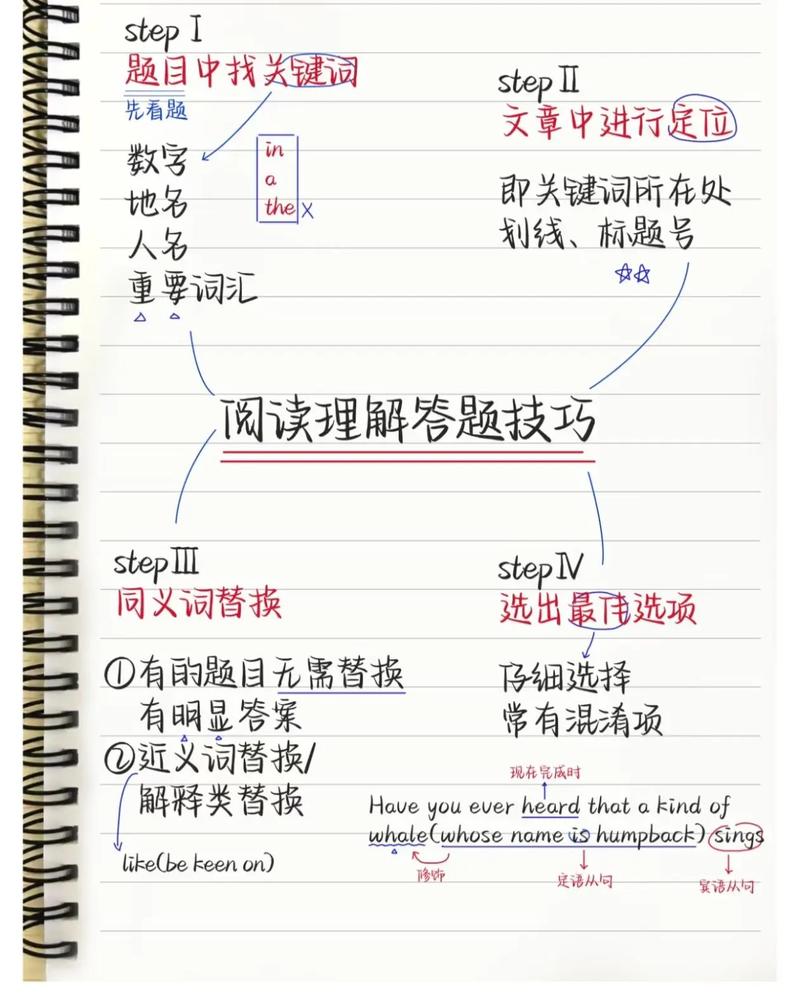 step I
题目中找关键词
先看题
数字
地名
人名
重要词汇
in
a
the X
step II
文章中进行定位
即关键词所在处
划线、标题号
阅读理解答题技巧
step III
同义词替换
①有的题目无需替换
有明显答案
②近义词替换/
解释类替换
like(be keen on)
step IV
选出最佳选项
仔细选择
常有混淆项
现在完成时
Have you ever heard that a kind of
whale(whose name is humpback) sings
修饰
定语从句
宾语从句